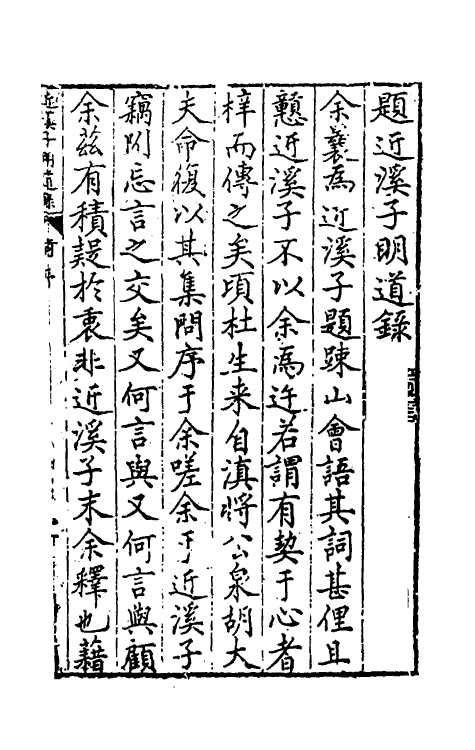 題近溪子明道錄
余曩爲近溪子題踈山會語其詞甚俚且
戇近溪子不以余爲迕若謂有契于心者
梓而傳之矣頃杜生来自滇將公泉胡大
夫命復以其集問序于余嗟余于近溪子
竊附忘言之交矣又何言與又何言與顧
余兹有積疑於衷非近溪子末余釋也藉
近溪子明道錄